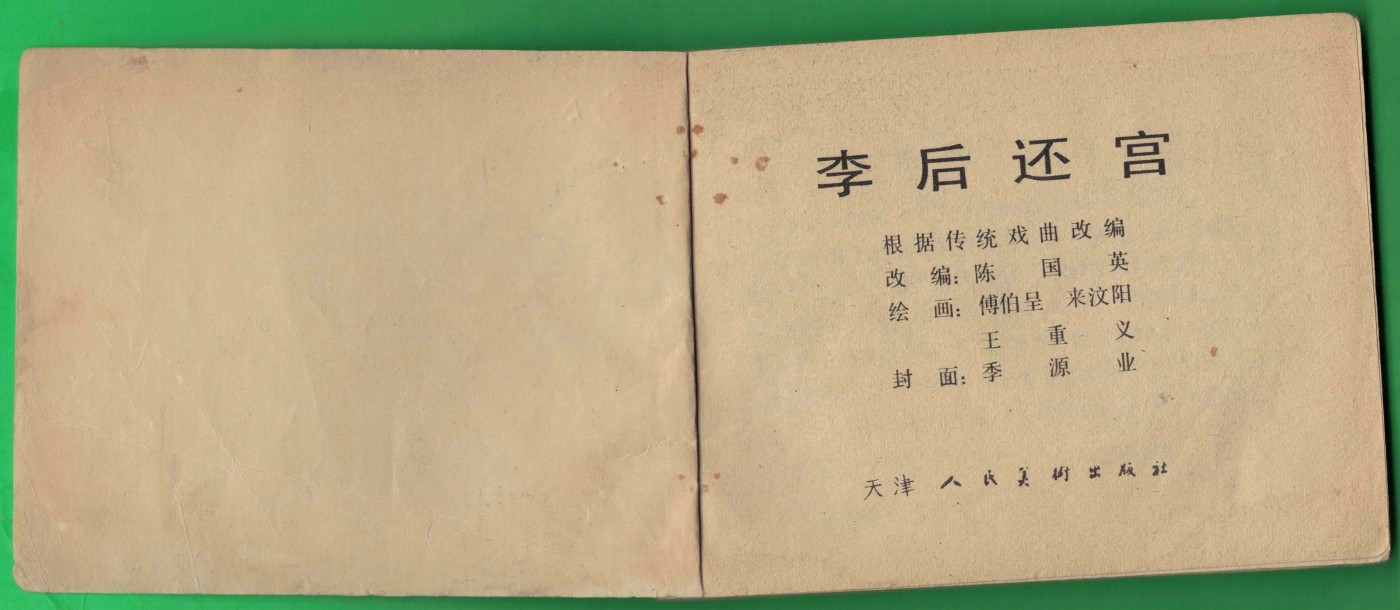 李后还宫
根据传统戏曲改编
改编：陈国英
绘画：傅伯呈 来汶阳
王重义
封面：季源业
天津人民美術出版社